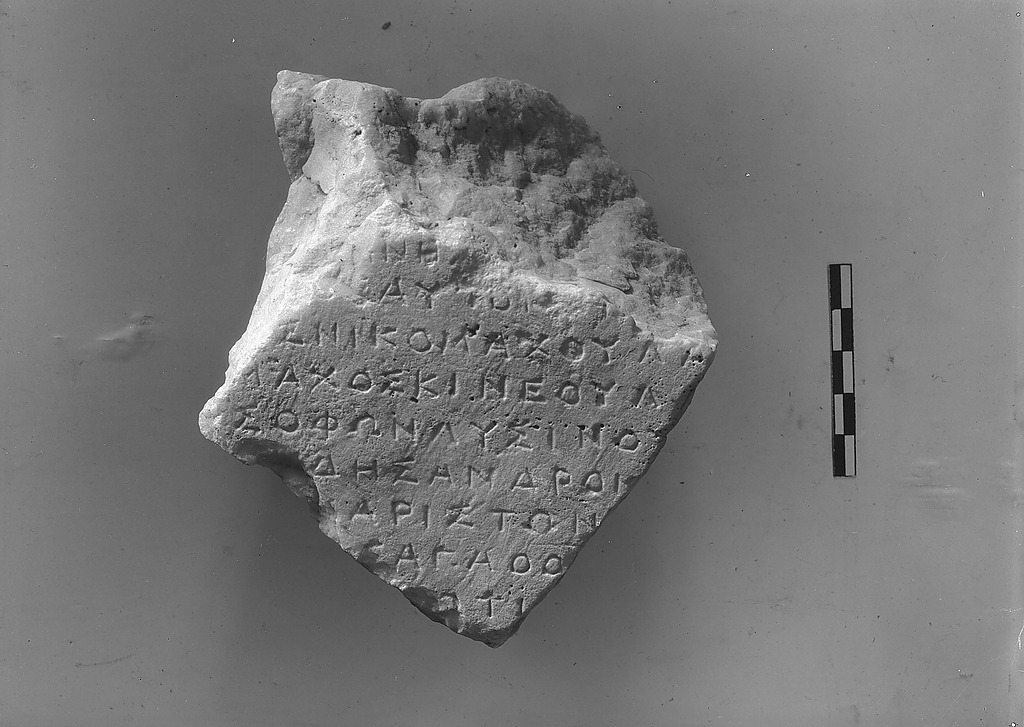 ΝΗ
ΔΥ
ΣΝΙΚΟΜΑΧΟΥΛ
ΑΧΟΣΚΙΝΕΟΥΛ
ΣΟΦΩΝΛΥΣΙΝΟ
ΔΗΣΑΝΔΡΟΙ
ΑΡΙΣΤΩΝ
ΣΑΓΑΘΟ
ΩΤΙ